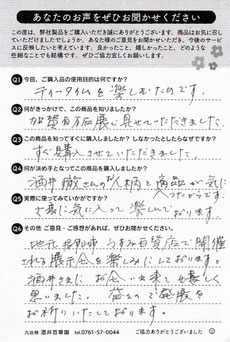 あなたのお声をぜひお聞かせください
この度は、弊社製品をご購入いただき誠にありがとうございます。商品はお気に召して
いただけましたでしょうか。あなた様のご意見をお聞かせいただき、今後のサービス
に反映したいと考えています。良かったこと、嬉しかったこと、どのような
些細なことでも結構です。ぜひご協力宜しくお願いします。
Q1 今回、ご購入品の使用目的は何ですか?
ティータイムを楽しむためです。
Q2 何がきっかけで、この商品を知りましたか?
百万石展で見せていただきました。
Q3 この商品を知ってすぐに購入しましたか? しなかったとしたらなぜですか?
すぐ購入させていただきました。
Q4 何が決め手となってこの商品を購入しましたか?
酒井徹さんのお人柄と商品が気に
Q5 実際に使ってみていかがですか?
大変に気に入って楽しんで
おります。
Q6 その他 ご意見・ご感想があれば、ぜひお聞かせください
百貨店で開催
される展示会を楽しみにしております。
酒井さまにお会い出来、嬉しく
思いました。益々のご発展を
お祈りいたしております。
九谷焼 酒井百華園 tel.0761-57-0044
ご協力ありがとうございました